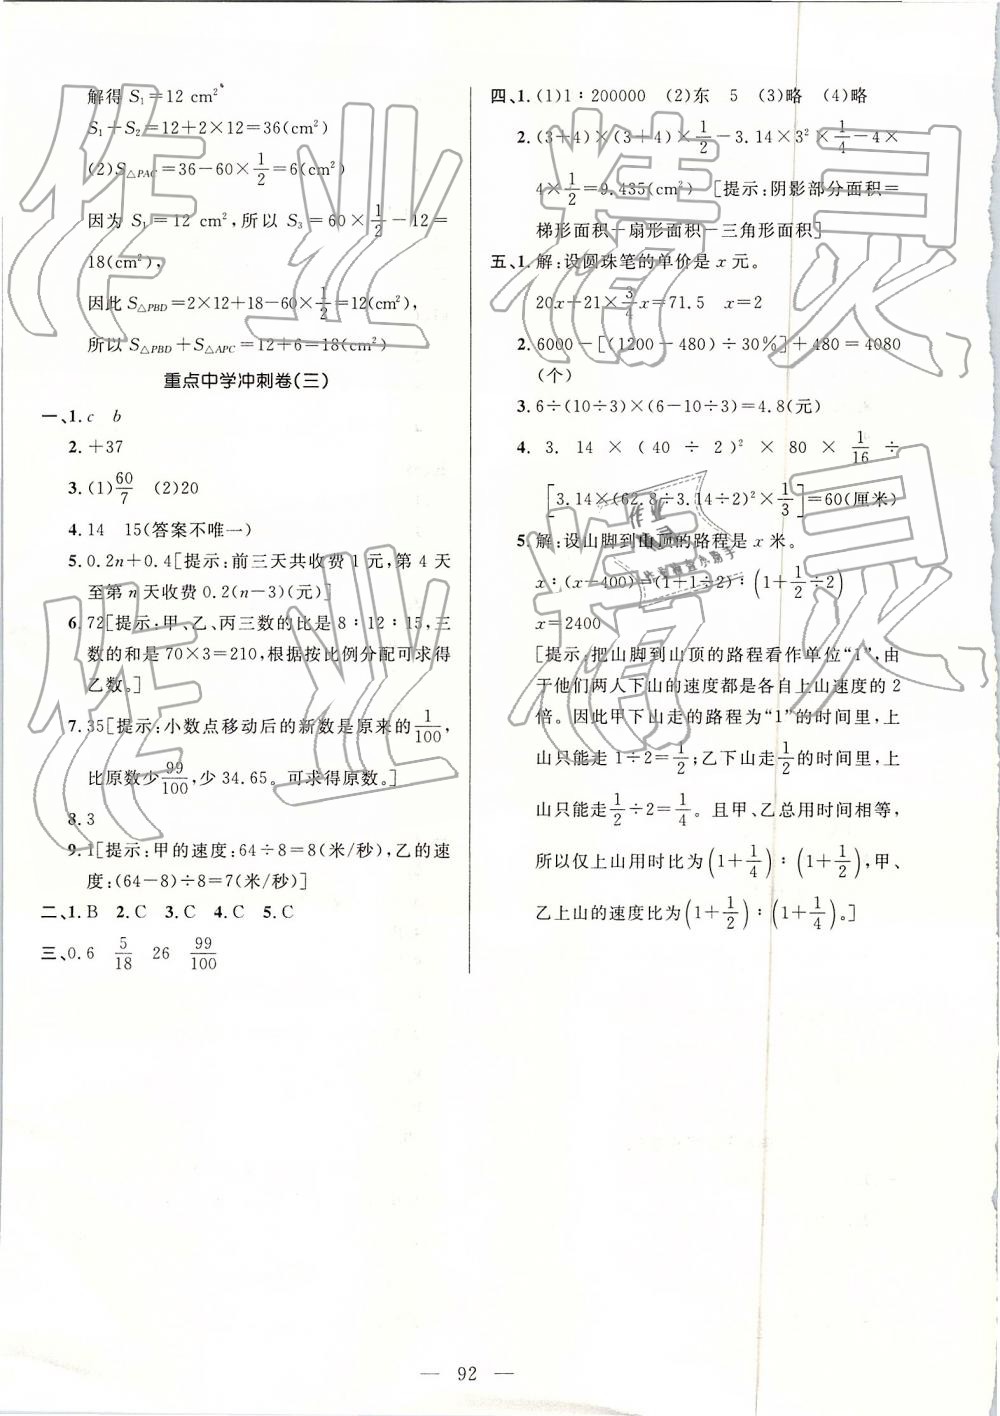 解得 S₁=12 cm²
S₁+S₂=12+2×12=36(cm²)
(2)S△PAC=36-60×1/2=6(cm²)
因为 S₁=12 cm²,所以 S₃=60×1/2-12=
18(cm²),
因此 S△PBD=2×12+18-60×1/2=12(cm²),
所以 S△PBD+S△APC=12+6=18(cm²)
重点中学冲刺卷(三)
一、1. c b
2. +37
3. (1)60/7 (2)20
4. 14 15(答案不唯一)
5. 0.2n+0.4[提示:前三天共收费 1 元,第 4 天
至第 n 天收费 0.2(n-3)(元)]
6. 72[提示:甲、乙、丙三数的比是 8∶12∶15,三
数的和是 70×3=210,根据按比例分配可求得
乙数。]
7. 35[提示:小数点移动后的新数是原来的 1/100,
比原数少 99/100,少 34.65。可求得原数。]
8. 3
9. 1[提示:甲的速度:64÷8=8(米/秒),乙的速
度:(64-8)÷8=7(米/秒)]
二、1. B 2. C 3. C 4. C 5. C
三、0.6 5/18 26 99/100
四、1. (1)1∶200000 (2)东 5 (3)略 (4)略
2. (3+4)×(3+4)×1/2-3.14×3²×1/4-4×
4×1/2=9.435(cm²) [提示:阴影部分面积=
梯形面积-扇形面积-三角形面积]
五、1. 解:设圆珠笔的单价是 x 元。
20x-21×3/4x=71.5 x=2
2. 6000-[(1200-480)÷30%]+480=4080
(个)
3. 6÷(10÷3)×(6-10÷3)=4.8(元)
4. 3.14×(40÷2)²×80×1/16÷
[3.14×(62.8÷3.14÷2)²×1/3]=60(厘米)
5. 解:设山脚到山顶的路程是 x 米。
x∶(x-400)=(1+1÷2)∶(1+1/2÷2)
x=2400
[提示:把山脚到山顶的路程看作单位“1”,由
于他们两人下山的速度都是各自上山速度的 2
倍。因此甲下山走的路程为“1”的时间里,上
山只能走 1÷2=1/2;乙下山走1/2的时间里,上
山只能走1/2÷2=1/4。且甲、乙总用时间相等,
所以仅上山用时比为(1+1/4)∶(1+1/2),甲、
乙上山的速度比为(1+1/2)∶(1+1/4)。]
— 92 —
作业精灵
作业精灵